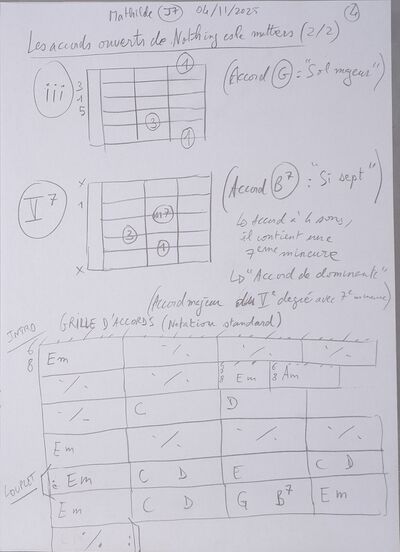 Mathilde (J7) 04/11/2025 4
Les accords ouverts de Nothing else matters (2/2)
iii
3
1
5
1
3
1
(Accord G = "Sol majeur")
V7
x
1
x
m7
2
1
(Accord B7 : "Si sept")
↳ Accord à 4 sons,
il contient une
7ème mineure
↳ "Accord de dominante"
(Accord majeur du Ve degré avec 7e mineure)
INTRO GRILLE D'ACCORDS (Notation standard)
6/8 Em ٪ ٪ ٪
٪ ٪ Em 6/8 Am
٪ C D
Em ٪ ٪ ٪
COUPLET : Em C D E C D
Em C D G B7 Em
٪ :